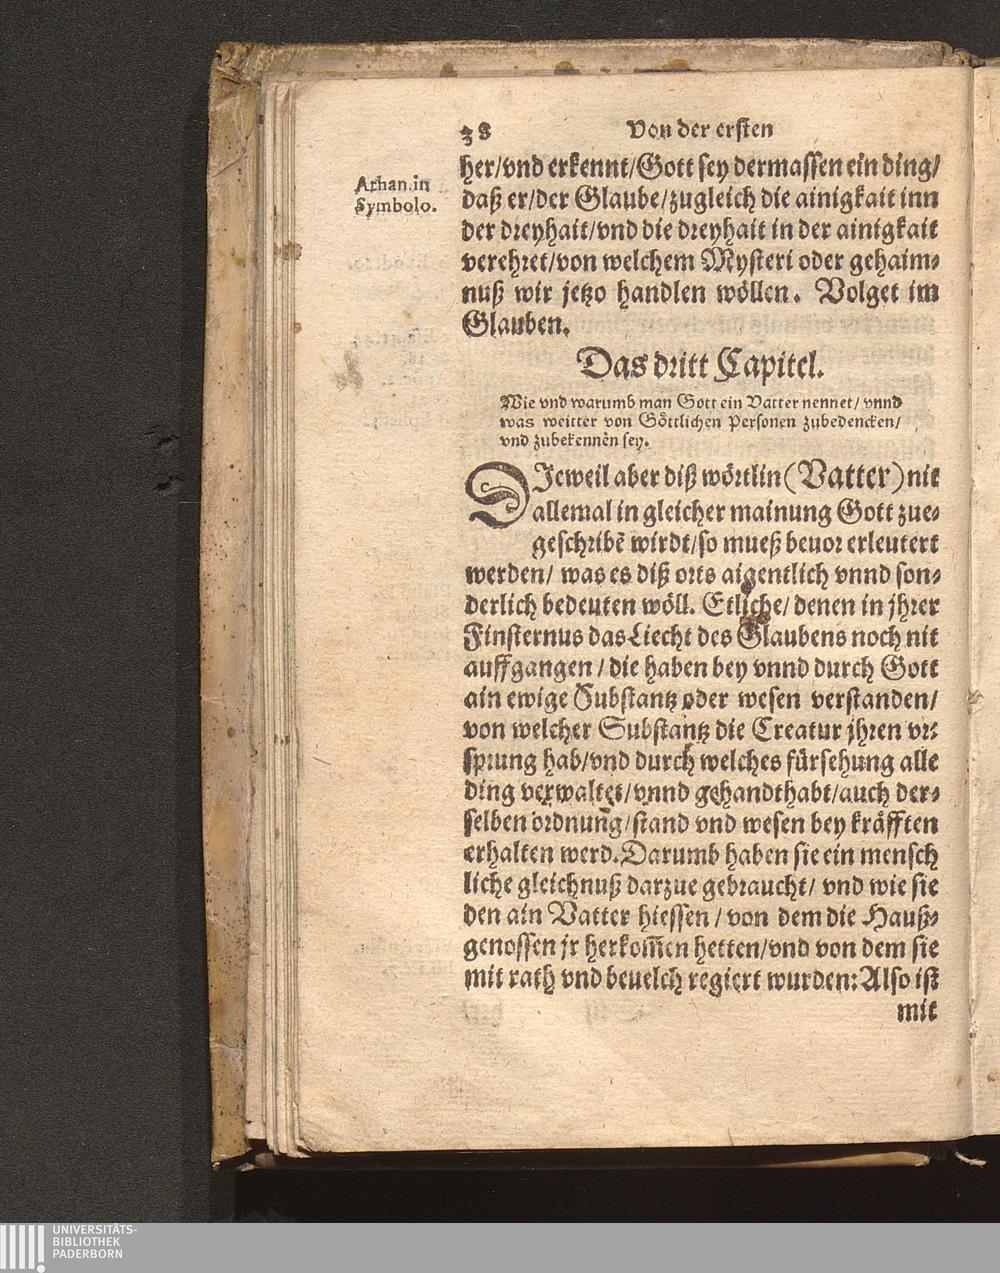 38 Von der ersten
her/vnd erkennt/Gott sey dermassen ein ding/
Athan. in
Symbolo.
daß er/der Glaube/zugleich die ainigkait inn
der dreyhait/vnd die dreyhait in der ainigkait
verehret/von welchem Mysteri oder gehaim-
nuß wir jetzo handlen wöllen. Volget im
Glauben.
Das dritt Capitel.
Wie vnd warumb man Gott ein Vatter nennet/ vnnd
was weitter von Göttlichen Personen zubedencken/
vnd zubekennẽn sey.
DIeweil aber diß wörtlin (Vatter) nit
allemal in gleicher mainung Gott zue-
geschribẽ wirdt/so mueß beuor erleutert
werden/ was es diß orts aigentlich vnnd son-
derlich bedeuten wöll. Etliche/ denen in jhrer
Finsternus das Liecht des Glaubens noch nit
auffgangen/ die haben bey vnnd durch Gott
ain ewige Substantz oder wesen verstanden/
von welcher Substantz die Creatur jhren vr-
sprung hab/vnd durch welches fürsehung alle
ding verwaltet/vnnd gehandthabt/auch der-
selben ordnung/stand vnd wesen bey kräfften
erhalten werd. Darumb haben sie ein mensch
liche gleichnuß darzue gebraucht/ vnd wie sie
den ain Vatter hiessen/ von dem die Hauß-
genossen jr herkom̃en hetten/vnd von dem sie
mit rath vnd beuelch regiert wurden: Also ist
mit
UNIVERSITÄTS-
BIBLIOTHEK
PADERBORN